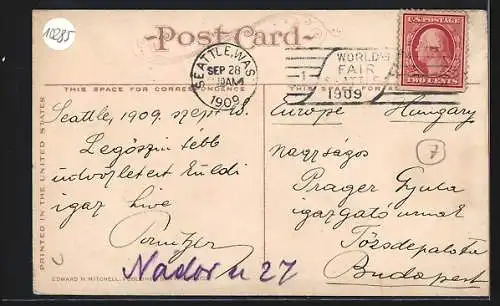 10295
Post Card
SEATTLE, WASH.
SEP 28
AM
1909
1
WORLD'S
FAIR
SEATTLE
1909
U.S. POSTAGE
TWO CENTS
THIS SPACE FOR CORRESPONDENCE
THIS
PRINTED IN THE UNITED STATES
Seattle, 1909. szept 28.
Legőszintébb
üdvözletét küldi
igaz hive
Europe Hungary
7
Nagyságos
Prager Gyula
igazgató urnak
Tőzsdepalota
Budapest
Nador u 27
EDWARD H. MITCHELL, PUBLISHER